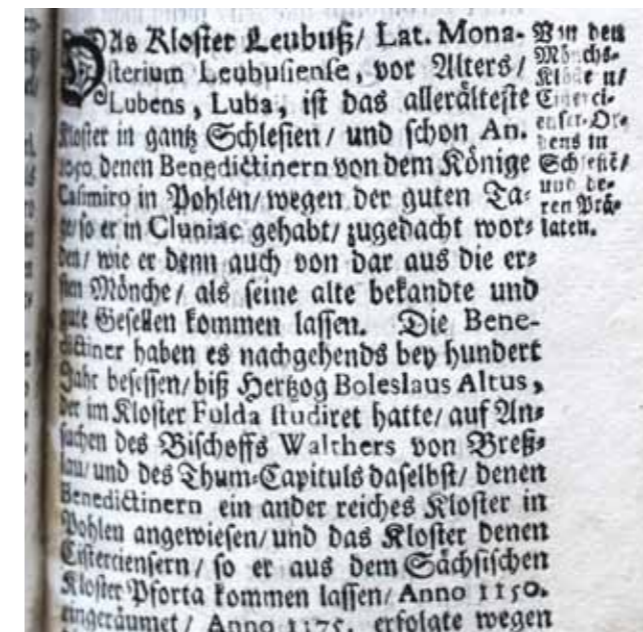 DAs Kloster Leubuß/ Lat. Mona-
sterium Leubusiense, vor Alters/
Lubens, Luba, ist das allerälteste
Kloster in gantz Schlesien/ und schon An.
denen Benedictinern von dem Könige
Casimiro in Pohlen/ wegen der guten Ta-
ge/ so er in Cluniac gehabt/ zugedacht wor-
den/ wie er denn auch von dar aus die er-
sten Mönche/ als seine alte bekandte und
gute Gesellen kommen lassen. Die Bene-
dictiner haben es nachgehends bey hundert
Jahr besessen/ biß Hertzog Boleslaus Altus,
der im Kloster Fulda studiret hatte/ auf An-
suchen des Bischoffs Walthers von Breß-
lau/ und des Thum-Capituls daselbst/ denen
Benedictinern ein ander reiches Kloster in
Pohlen angewiesen/ und das Kloster denen
Cisterciensern/ so er aus dem Sächsischen
Kloster Pforta kommen lassen/ Anno 1150.
eingeräumet/ Anno 1175. erfolgte wegen
Von den
Mönchs-
Cisterci-
enser-Or-
dens in
Schlesie/
und de-
ren Prä-
laten.